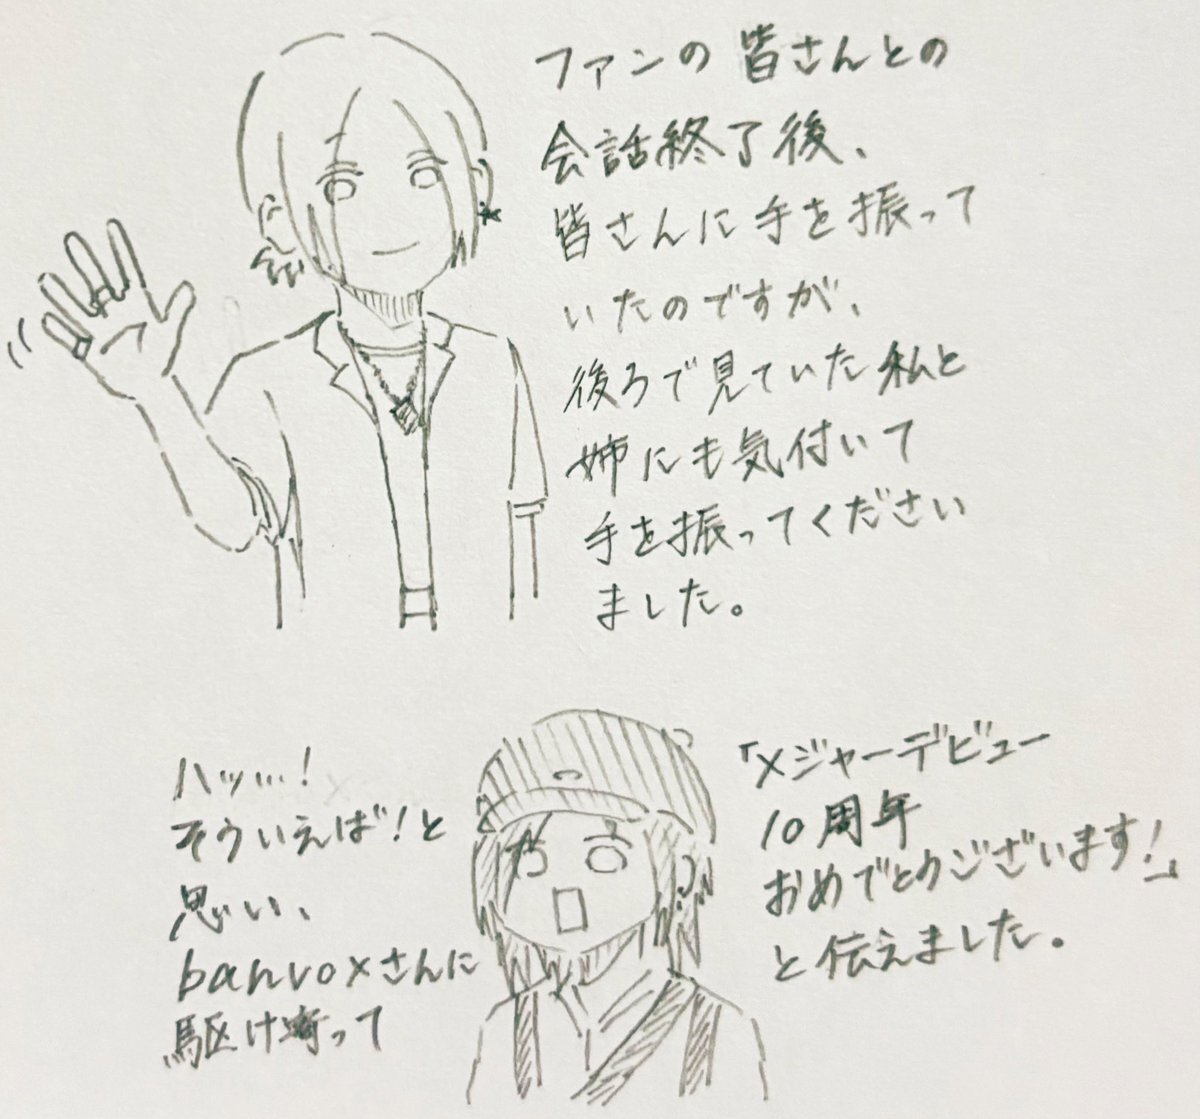 ファンの皆さんとの
会話終了後、
皆さんに手を振って
いたのですが、
後ろで見ていた私と
姉にも気付いて
手を振ってください
ました。
ハッ…!
そういえば!と
思い、
banvoxさんに
駆け寄って
「メジャーデビュー
10周年
おめでとうございます!」
と伝えました。